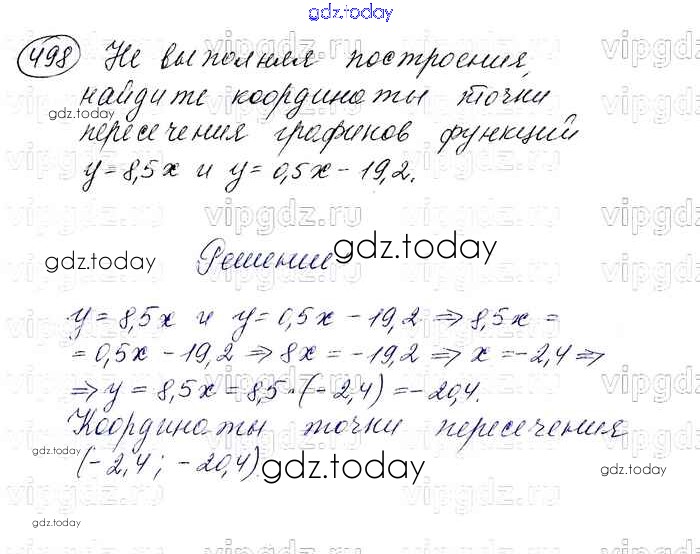 gdz.today
498 Не выполняя построения,
найдите координаты точки
пересечения графиков функций
y = 8,5x и y = 0,5x - 19,2.
Решение
y = 8,5x и y = 0,5x - 19,2 ⇒ 8,5x =
= 0,5x - 19,2 ⇒ 8x = -19,2 ⇒ x = -2,4 ⇒
⇒ y = 8,5x = 8,5 · (-2,4) = -20,4.
Координаты точки пересечения
(-2,4; -20,4)
gdz.today
gdz.today
gdz.today
gdz.today
gdz.today
gdz.today
gdz.today
gdz.today
vipgdz.ru